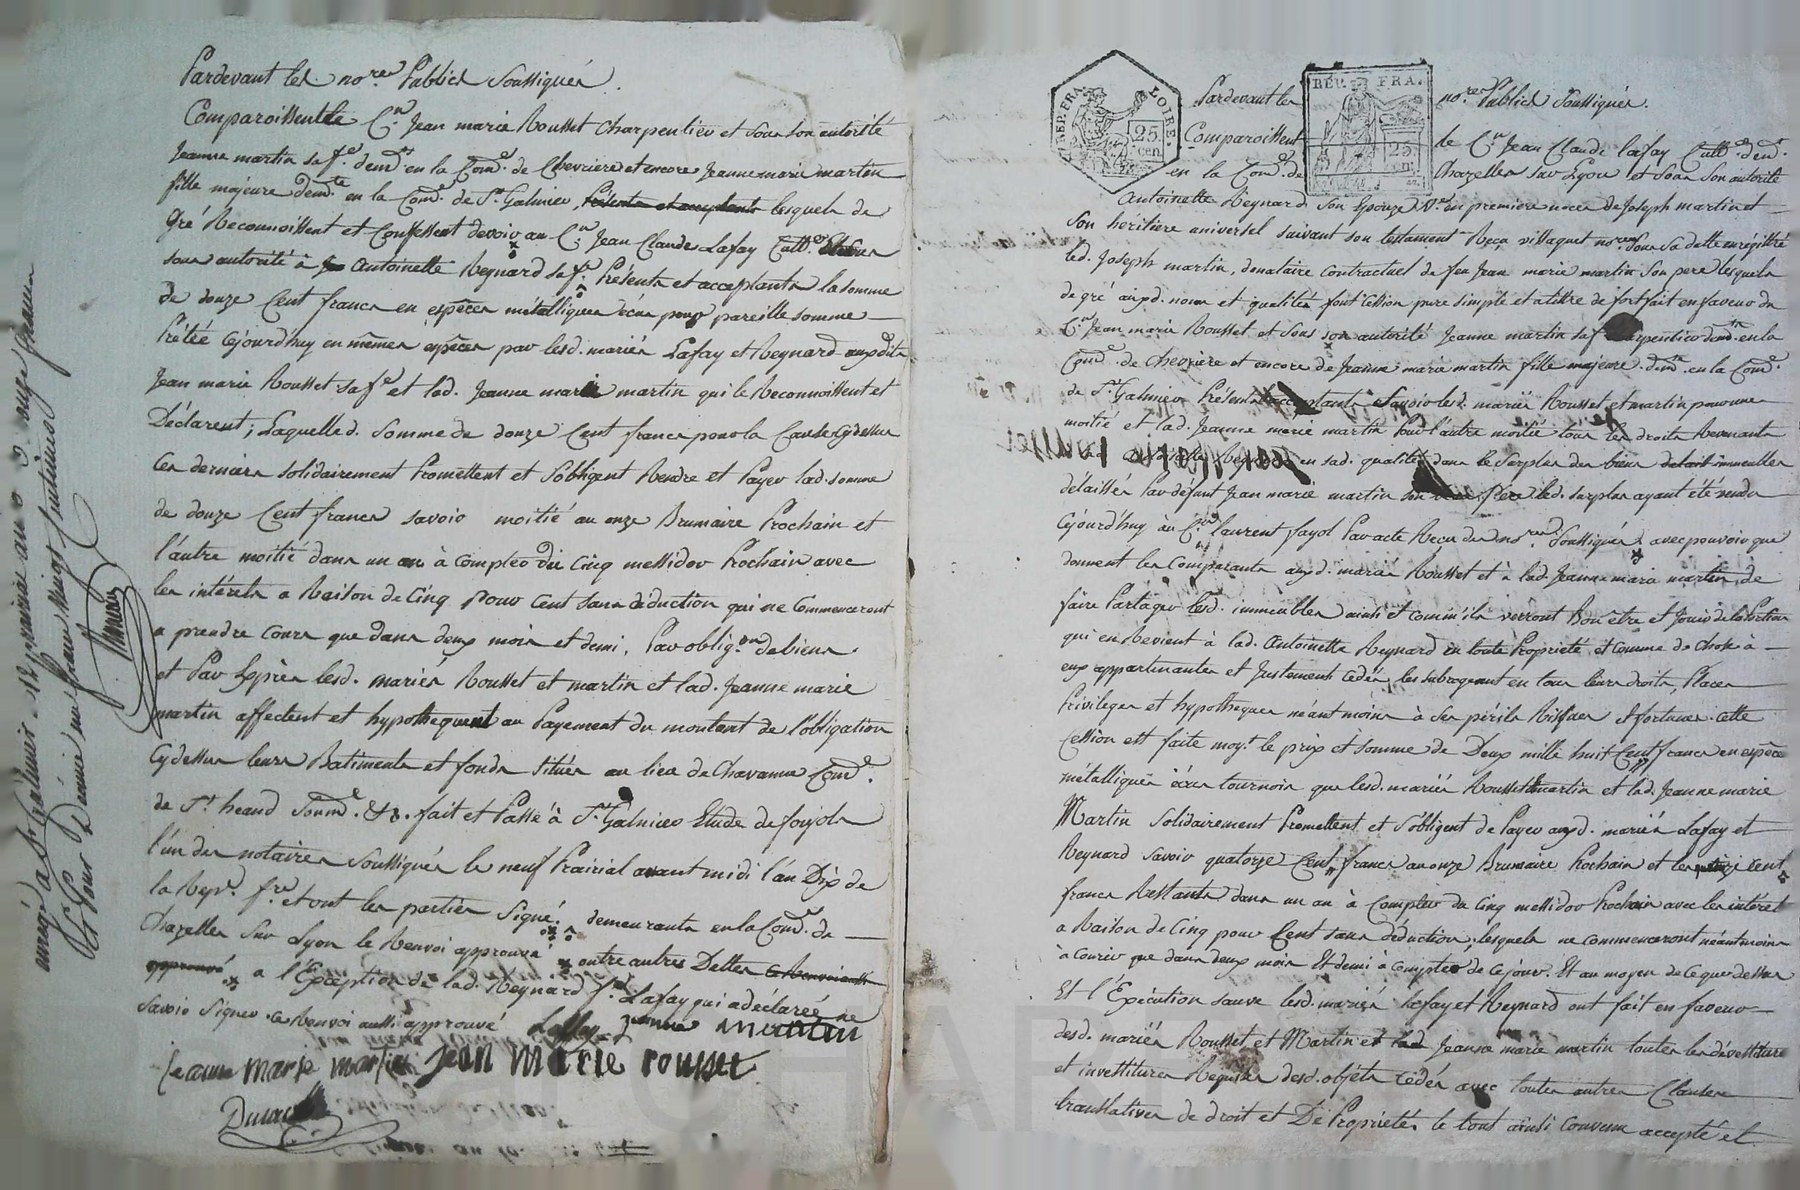 Pardevant les no.res Publics Soussignés.
Comparoissent le C.n Jean marie Rousset Charpentier et sous son autorité
Jeanne martin sa f.e demts en la Com.e de Chevriere et encore Jeanne marie martin
fille majeure demte en la Com.e de St. Galmier, présents et acceptants lesquels de
Gré Reconnoissent et Confessent devoir au C.n Jean Claude Lafay Cult.r
sous autorité à Antoinette Reynard sa f.e Présents et acceptants la somme
de douze Cent francs en espèces métalliques écus pour pareille somme
Prêtée Cejourd'huy en mêmes espèces par lesd. mariés Lafay et Reynard auxdits
Jean marie Rousset sa f.e et lad. Jeanne marie martin qui le Reconnoissent et
Déclarent; Laquelle d. somme de douze Cent francs pour la Cause Cydessus
Ces derniers solidairement Promettent et s'obligent Rendre et Payer lad. somme
de douze Cent francs savoir moitié au onze Brumaire Prochain et
l'autre moitié dans un an à Compter du Cinq messidor Prochain avec
les intérêts a Raison de Cinq pour Cent sans déduction qui ne Commenceront
a prendre Cours que dans deux mois et demi, Par oblig.on de biens
et Par Exprès lesd. mariés Rousset et martin et lad. Jeanne marie
martin affectent et hypothequent au Payement du montant de l'obligation
Cydessus leurs Batiments et fonds Situés au lieu de Chavanne Com.e
de St. heand Soum.e &a. fait et Passé à St. Galmier Etude de
l'un des notaires Soussignés le neuf Prairial avant midi l'an Dix de
la Rep.e fr.e et ont les parties Signé. demeurants en la Com.e de
Chazelles sur Lyon le Renvoi approuvé outre autres Dettes
approuvé a l'Exception de lad. Reynard f.e Lafay qui a déclaré ne
savoir Signer ce Renvoi aussi approuvé Laffay Jeanne martin
Jeanne marie martin Jean marie rousset
enregé a St. Galmier le 12 prairial an 10
Pardevant les no.res Publics Soussignés.
REP. FRA. LOIRE. 25 cen.
REP. FRA. 25 cen.
Comparoissent le C.n Jean Claude lafay Cult.r dem.t
en la Com.e de Chazelles sur Lyon et sous son autorité
Antoinette Reynard son Epouze V.e en premiere noces de Joseph martin et
Son heritiere universel suivant son testament Reçu villaquet no.re sous sa datte enrégistré
led. Joseph martin, donataire Contractuel de feu Jean marie martin Son pere lesquels
de gré auxd. noms et qualités font Cession pure simple et a titre de fort fait en faveur du
C.n Jean marie Rousset et sous son autorité Jeanne martin sa f. Charpentier demts en la
Com.e de Chevriere et encore de Jeanne marie martin fille majeure dem.te en la Com.e
de St. Galmier Présents acceptants savoir lesd. mariés Rousset et martin pour une
moitié et lad. Jeanne marie martin Pour l'autre moitié tous les droits Revenants
en sad. qualité dans le Surplus des biens immeubles
délaissés Par défunt Jean marie martin Père led. surplus ayant été vendu
Cejourd'huy au C.n laurent fayol Par acte Reçu des no.res Soussignés avec pouvoir que
donnent les Comparants auxd. mariés Rousset et à lad. Jeanne marie martin de
faire Partager lesd. immeubles ainsi et comm'ils verront Bon etre et Jouir de la Portion
qui en Revient à lad. Antoinette Reynard en toute Propriété et Comme de Chose à
eux appartenantes et Justement Cedés, les subrogeant en tous leurs droits, Places
Privileges et hypotheques néantmoins à Ses périls Risques et fortunes. Cette
Cession est faite moy.t le prix et somme de Deux mille huit Cent francs en espèces
métalliques écus tournois que lesd. mariés Rousset et Martin et lad. Jeanne marie
Martin Solidairement Promettent et s'obligent de Payer auxd. mariés Lafay et
Reynard Savoir quatorze Cent francs au onze Brumaire Prochain et les cent
francs Restants dans un an à Compter du Cinq messidor Prochain avec les intérêt
a Raison de Cinq pour Cent sans déduction, lesquels ne commenceront néantmoins
à Courir que dans deux mois Et demi à Compter de Cejour. Et au moyen de Ce que dessus
Et l'Exécution sauve lesd. mariés Lafay et Reynard ont fait en faveur
desd. mariés Rousset et Martin et lad. Jeanne marie martin toutes les dévettiture
et investitures Requises desd. objets Cédés avec toutes autres Clauses
translatives de droit et De Propriétés le tout ainsi Convenu accepté et